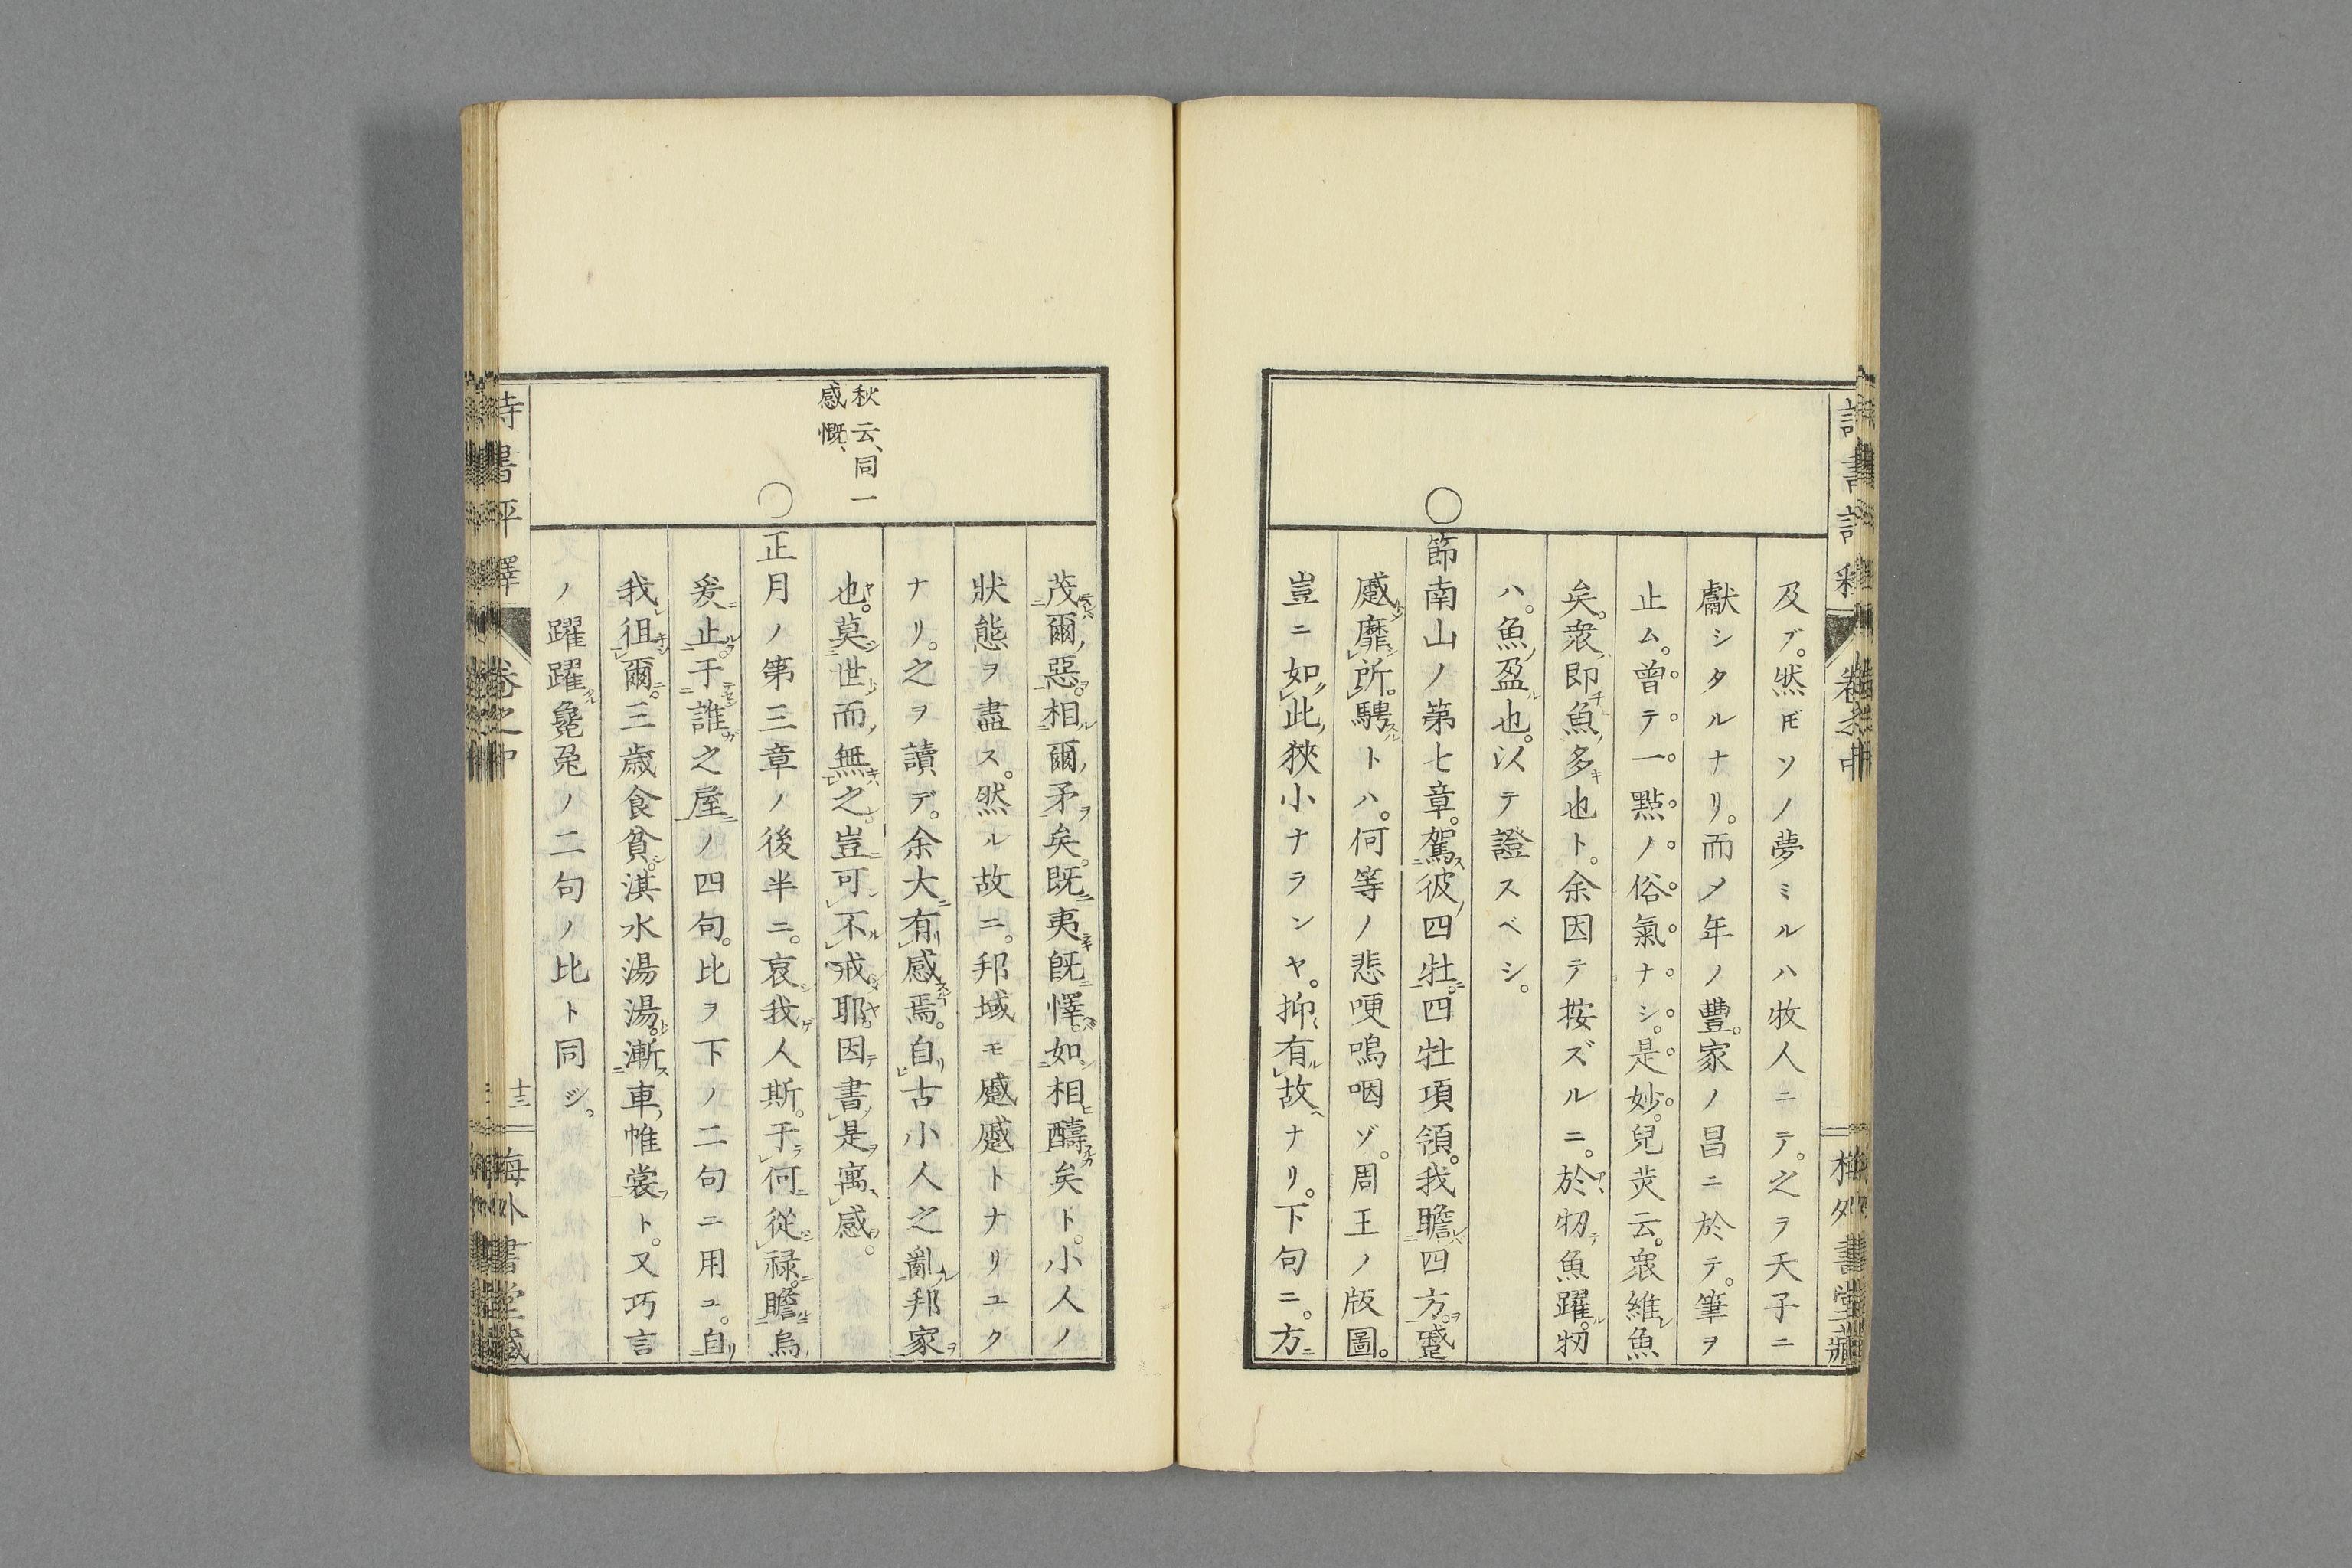 及ブ。然𪜈ソノ夢ミルハ牧人ニテ。之ヲ天子ニ
獻シタルナリ。而〆年ノ豐。家ノ昌ニ於テ。筆ヲ
止ム。曾テ一點ノ俗氣ナシ。是妙。兒茭云。衆維魚
矣。衆即魚多也ト。余因テ按ズルニ。於牣魚躍。牣
ハ。魚盈也。以テ證スベシ。
○節南山ノ第七章。駕彼四牡。四牡項領。我瞻四方。蹙
蹙靡所騁トハ。何等ノ悲哽嗚咽ゾ。周王ノ版圖。
豈ニ如此狹小ナランヤ。抑有故ナリ。下句ニ。方
茂爾惡。相爾矛矣。既夷既懌。如相醻矣ト。小人ノ
狀態ヲ盡ス。然ル故ニ。邦域モ蹙蹙トナリユク
ナリ。之ヲ讀デ。余大有感焉。自古小人之亂邦家
也。莫世而無之。豈可不戒耶。因書是寓感。
秋云、同一
感慨、
○正月ノ第三章ノ後半ニ。哀我人斯。于何從祿。瞻烏
爰止。于誰之屋ノ四句。比ヲ下ノ二句ニ用ユ。自
我徂爾。三歳食貧。淇水湯湯。漸車帷裳ト。又巧言
ノ躍躍毚兔ノ二句ノ比ト同ジ。
詩書評釋
卷之中
十三
梅外書堂藏